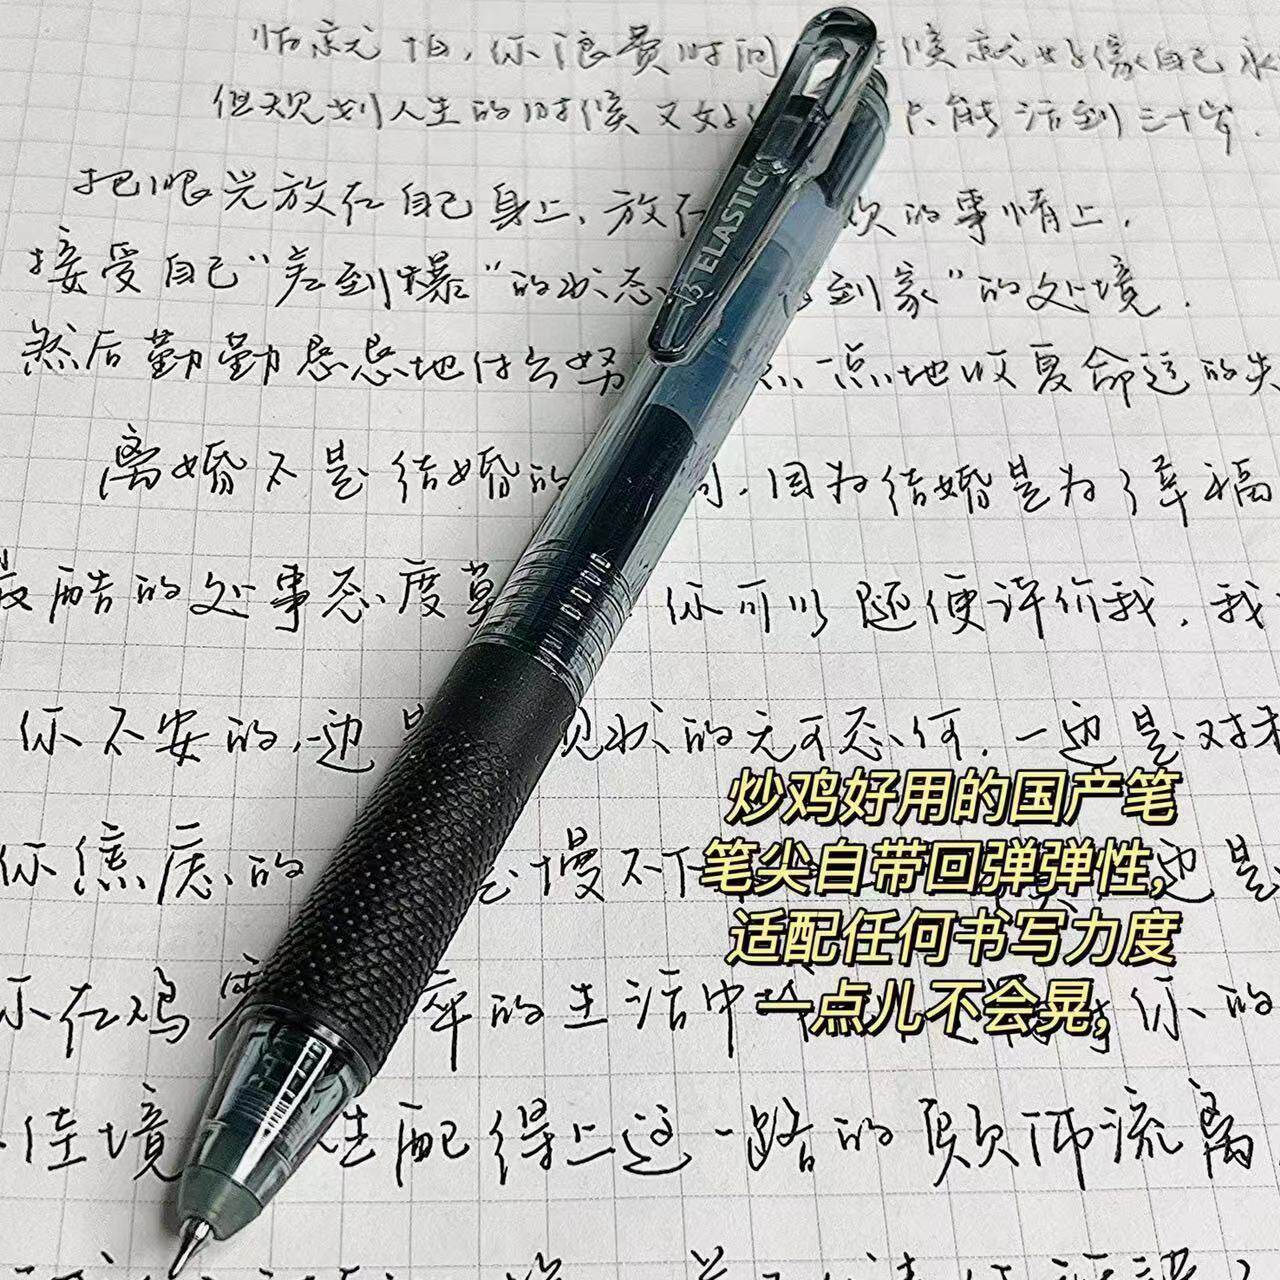 怕就怕,你浪费时间 候就好像自己永
但规划人生的时候又好 只能活到三十岁.
把眼光放在自己身上,放在 欢的事情上,
接受自己"差到爆"的状态 到家"的处境.
然后勤勤恳恳地什么努 点地收复命运的失
ELASTIC
离婚不是结婚的 因为结婚是为了幸福
最酷的处事态度莫 你可以随便评价我,我
你不安的,一边是 现状的无可奈何,一边是对未
炒鸡好用的国产笔
笔尖自带回弹弹性,
适配任何书写力度
一点儿不会晃,
你焦虑的 是慢不下 边是
你在鸡零 碎的生活中 你的
佳境 生配得上这一路的颠沛流离